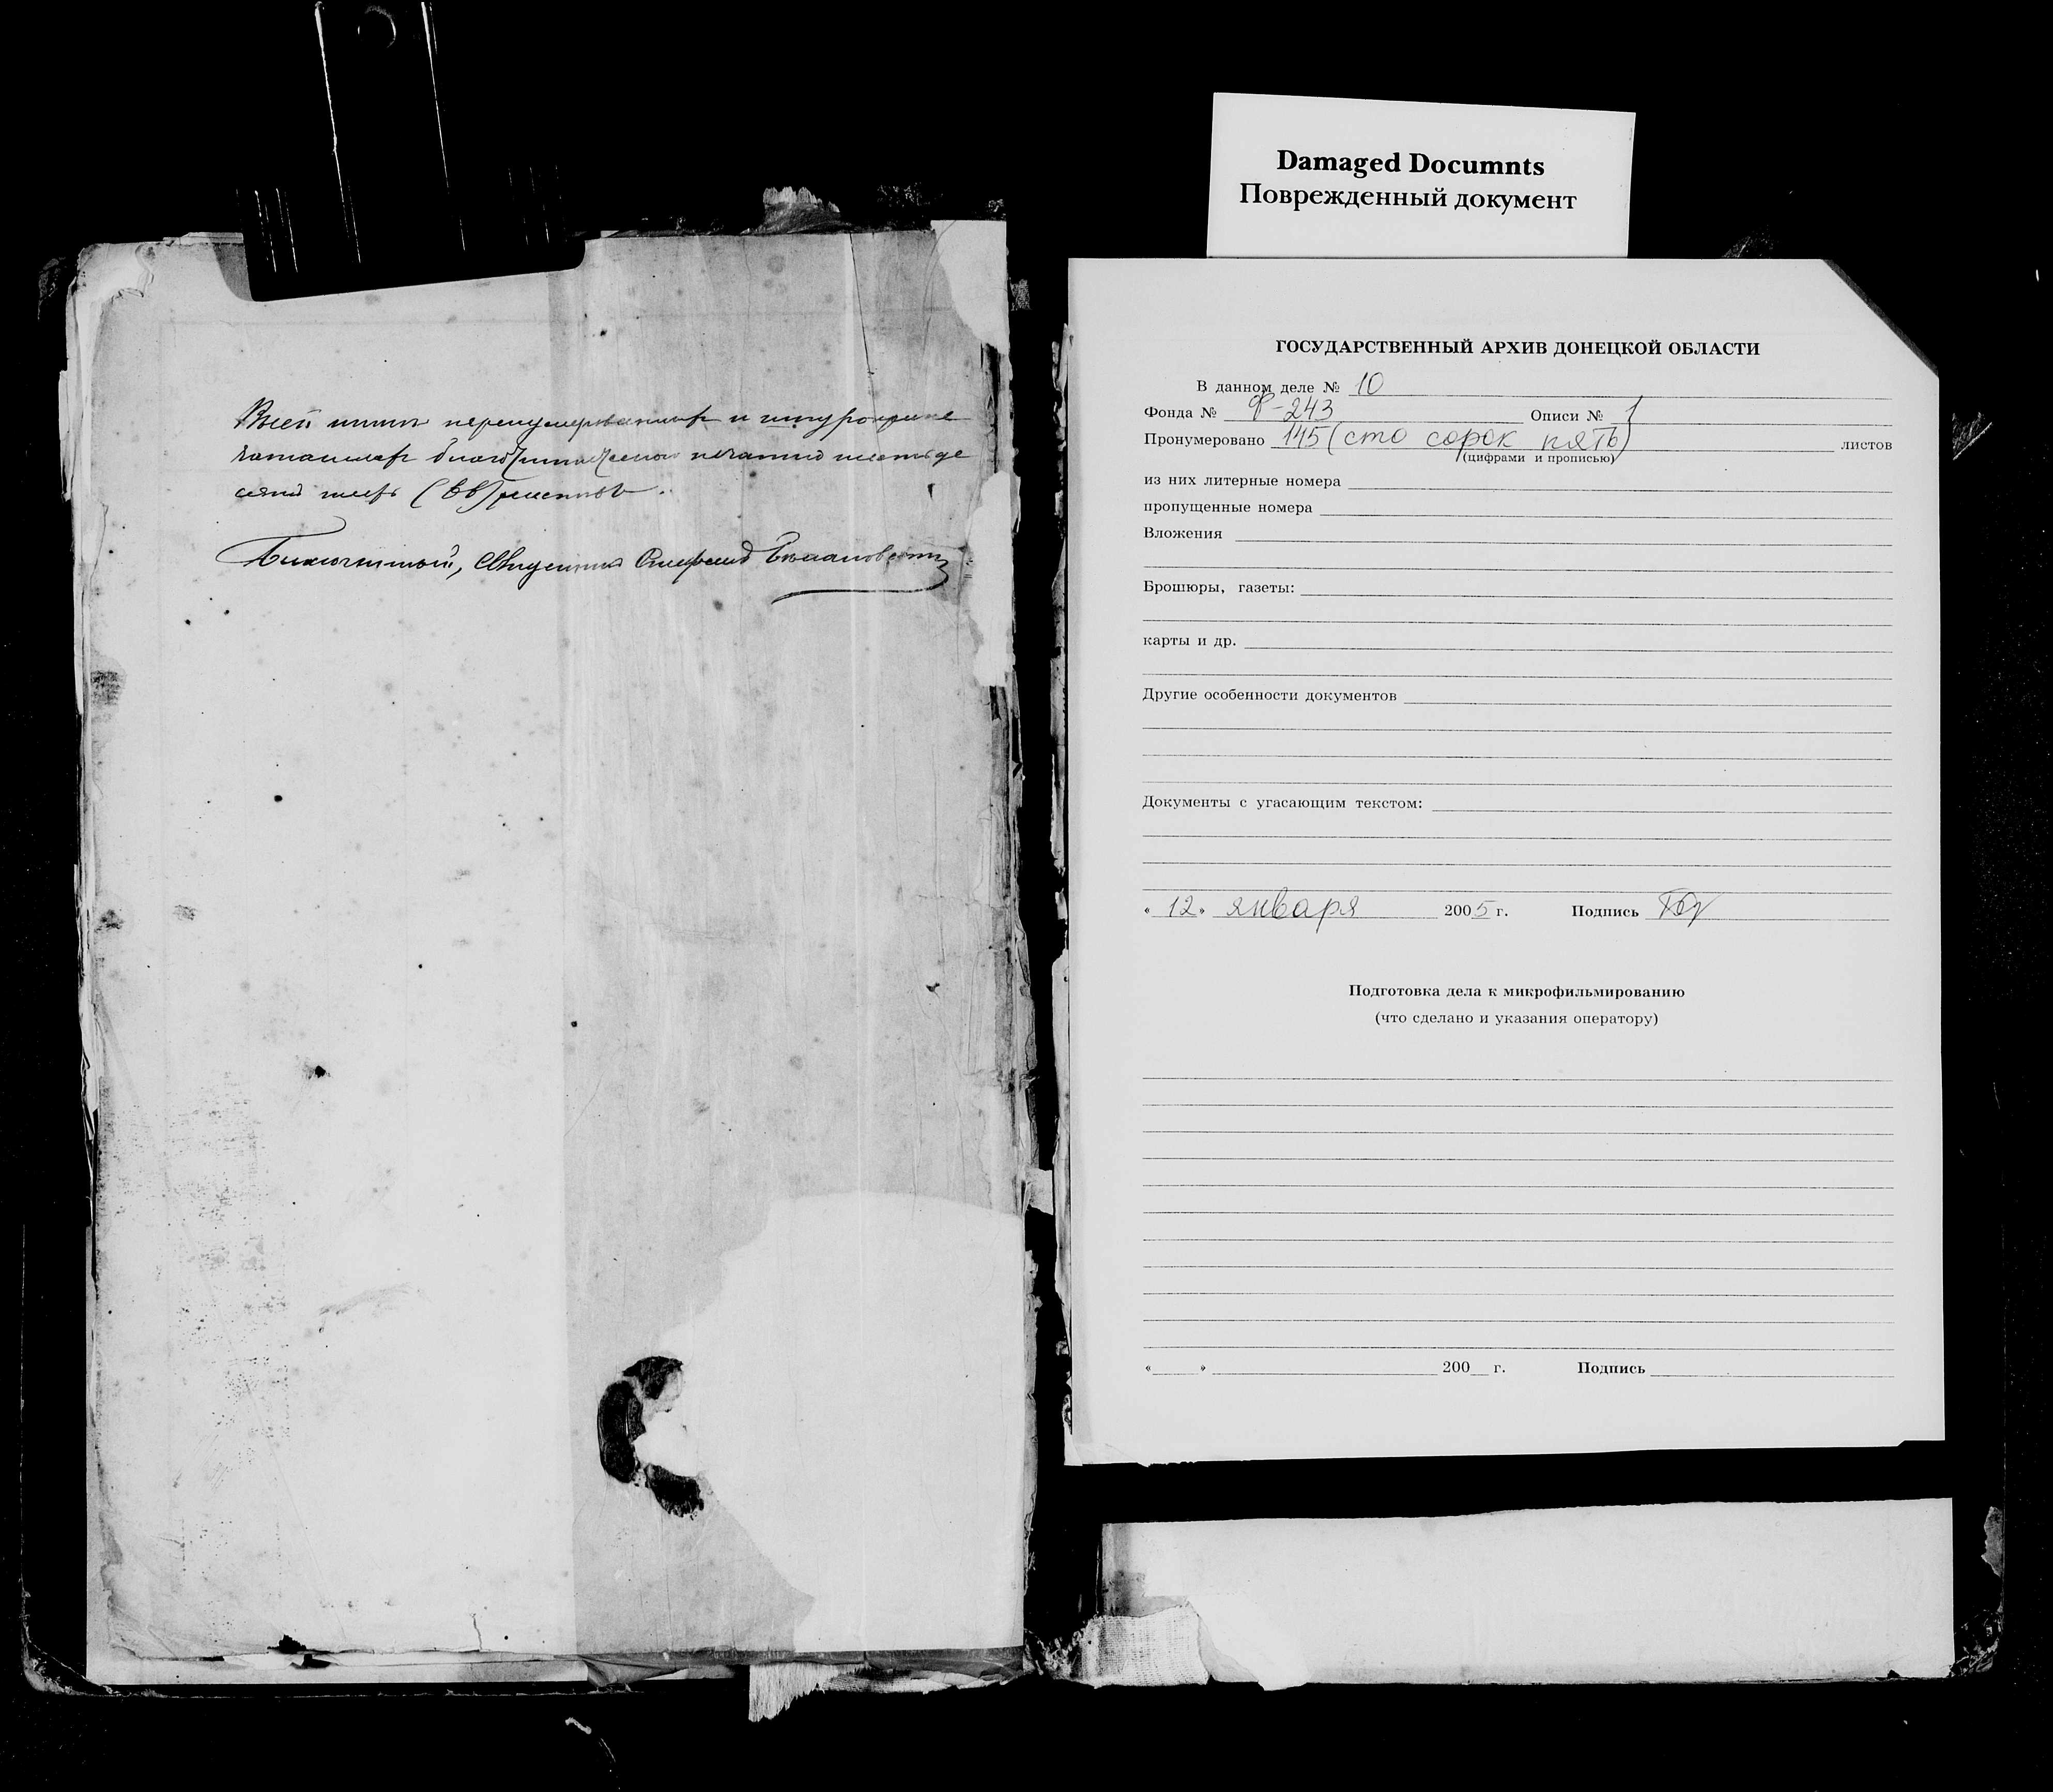 Всей
и
печатью шестьде
(66)
Благочинный, Священник
Damaged Documnts
Поврежденный документ
ГОСУДАРСТВЕННЫЙ АРХИВ ДОНЕЦКОЙ ОБЛАСТИ
В данном деле № 10
Фонда № Ф-243 Описи № 1
Пронумеровано 145 (сто сорок пять) листов
(цифрами и прописью)
из них литерные номера
пропущенные номера
Вложения
Брошюры, газеты:
карты и др.
Другие особенности документов
Документы с угасающим текстом:
« 12 » января 2005 г. Подпись
Подготовка дела к микрофильмированию
(что сделано и указания оператору)
« » 200 г. Подпись